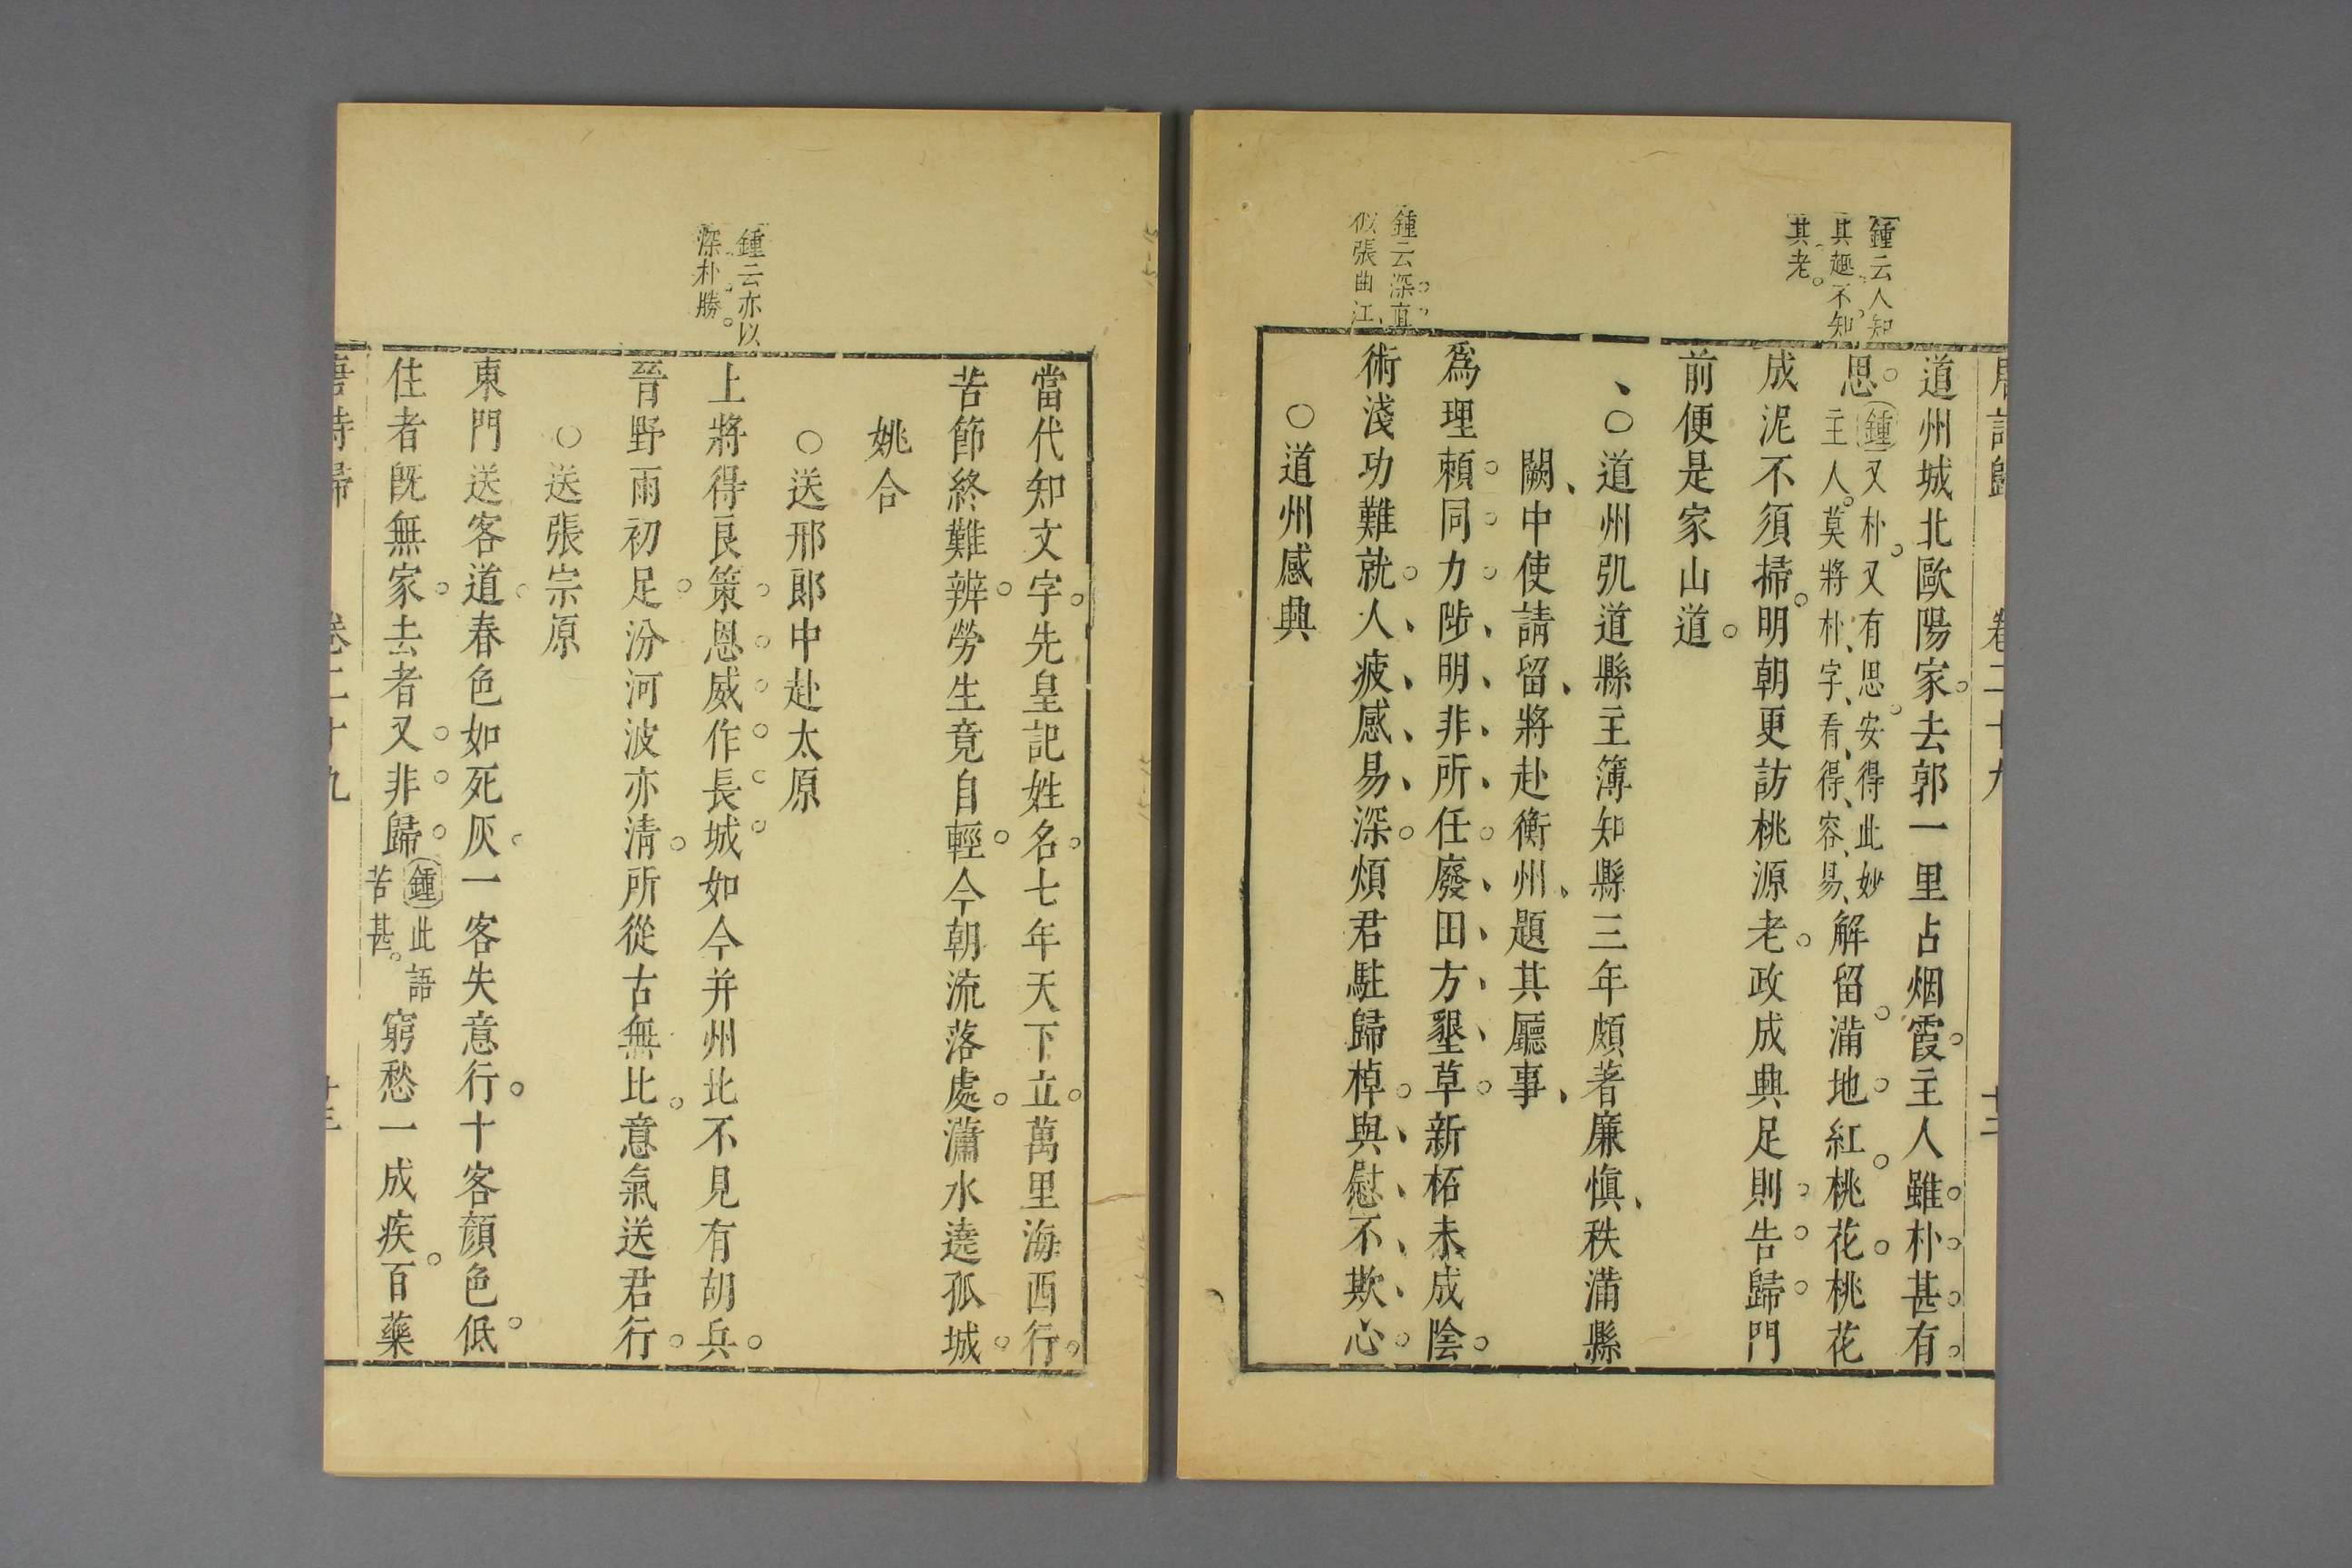 唐詩歸 卷二十九 十三
鍾云人知
其趣不知
其老。
道州城北歐陽家。去郭一里占烟霞。主人雖朴甚有。
思。鍾又朴。又有思。安得此妙
主人。莫將朴字看得容易解留滿地紅桃花。桃花
成泥不須掃。明朝更訪桃源老。政成興足則告歸。門
前便是家山道。
鍾云深。直。
似張曲江、
、○道州弘道縣主簿知縣三年頗著廉慎、秩滿縣
闕、中使請留、將赴衡州、題其廳事、
爲理賴同力。陟明非所任。廢田方墾草。新柘未成陰。
術淺功難就。人疲感易深。煩君駐歸棹。與慰不欺心。
○道州感興
鍾云亦以
深朴、勝。
當代知文字。先皇記姓名。七年天下立。萬里海西行。
苦節終難辨。勞生竟自輕。今朝流落處。瀟水遶孤城。
姚合
○送邢郎中赴太原
上將得良策。恩威作長城。如今并州北不見有胡兵。
晉野雨初足。汾河波亦清。所從古無比。意氣送君行。
○送張宗原
東門送客道。春色如死灰。一客失意行。十客顏色低。
住者旣無家。去者又非歸。鍾此語
苦甚。窮愁一成疾。百藥
唐詩歸 卷二十九 十三